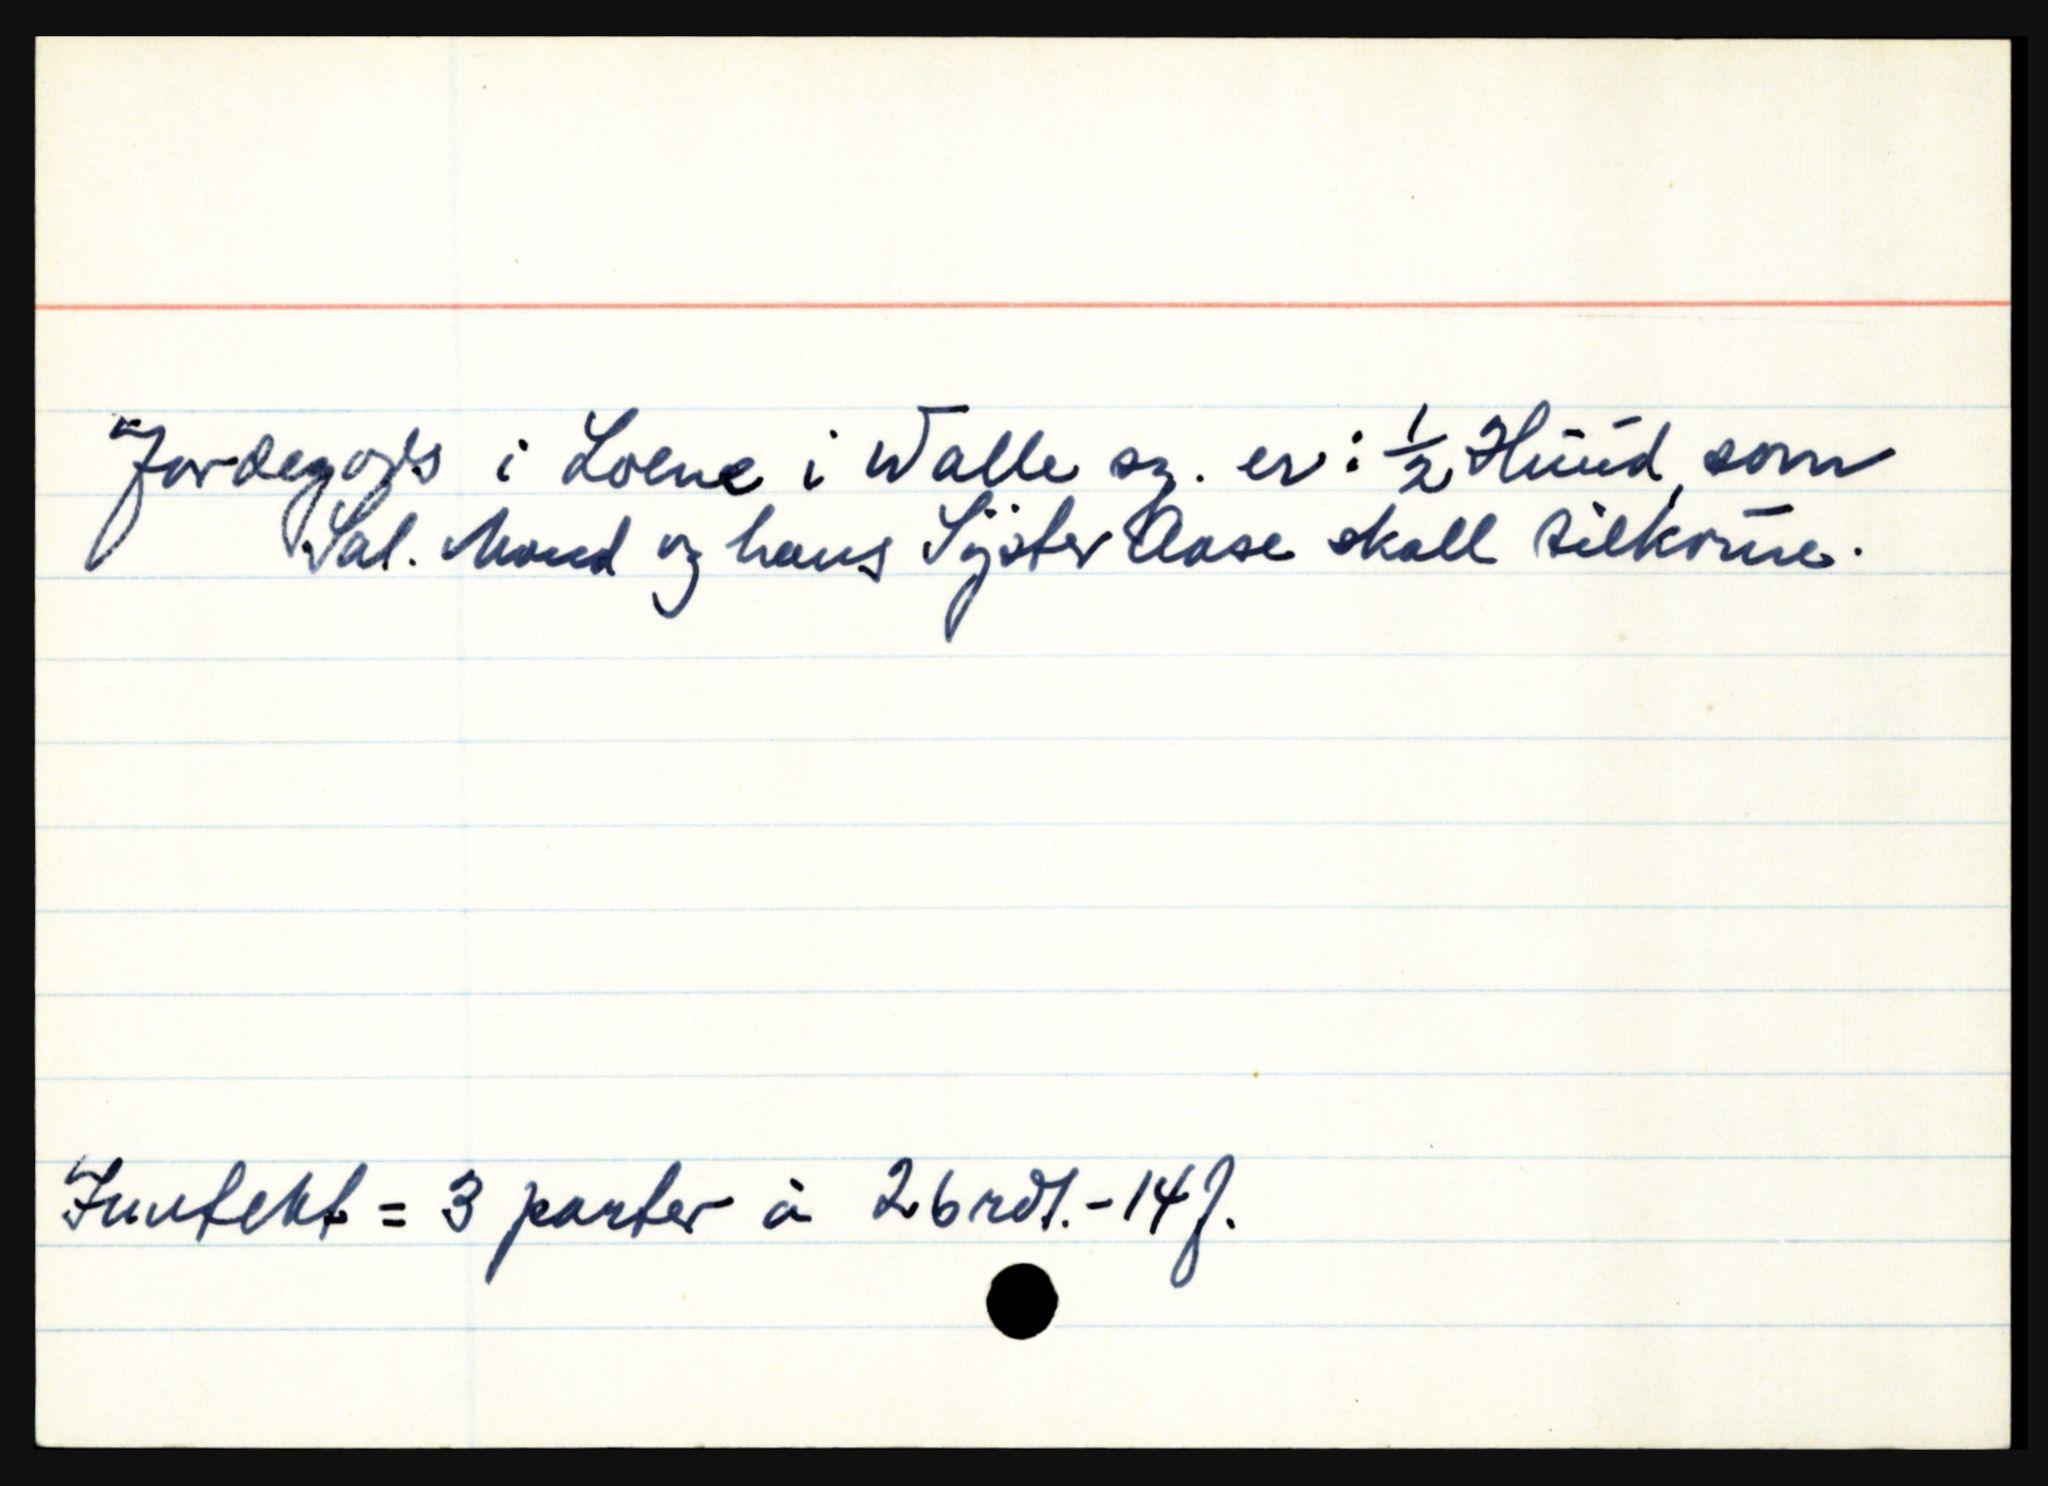 Jordegods i Loene i Walle sg. er: 1/2 Huud, som
Sal. Mand og hans Syster Aase skall tilkom̄e.
Inntekt = 3 parter à 26 rdl. - 14 ƒ.